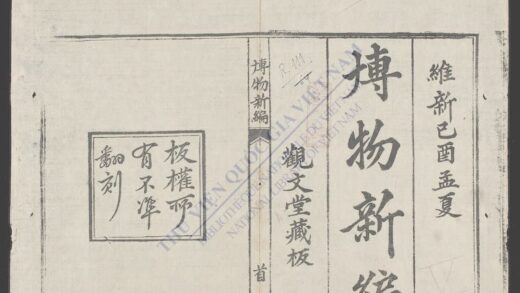 維新己酉孟夏
博物新編
觀文堂藏板
博物新編
首
板權所
有不準
翻刻
THƯ VIỆN QUỐC GIA VIỆT NAM
BIBLIOTHÈQUE NATIONALE DU VIETNAM
NATIONAL LIBRARY OF VIETNAM